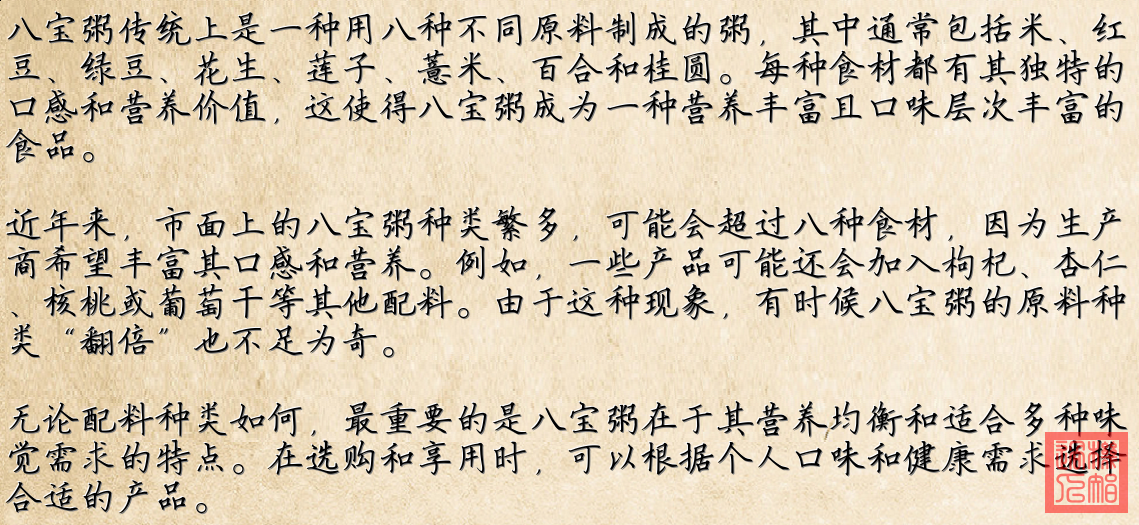 八宝粥传统上是一种用八种不同原料制成的粥，其中通常包括米、红
豆、绿豆、花生、莲子、薏米、百合和桂圆。每种食材都有其独特的
口感和营养价值，这使得八宝粥成为一种营养丰富且口味层次丰富的
食品。
近年来，市面上的八宝粥种类繁多，可能会超过八种食材，因为生产
商希望丰富其口感和营养。例如，一些产品可能还会加入枸杞、杏仁
、核桃或葡萄干等其他配料。由于这种现象，有时候八宝粥的原料种
类“翻倍”也不足为奇。
无论配料种类如何，最重要的是八宝粥在于其营养均衡和适合多种味
觉需求的特点。在选购和享用时，可以根据个人口味和健康需求选择
合适的产品。